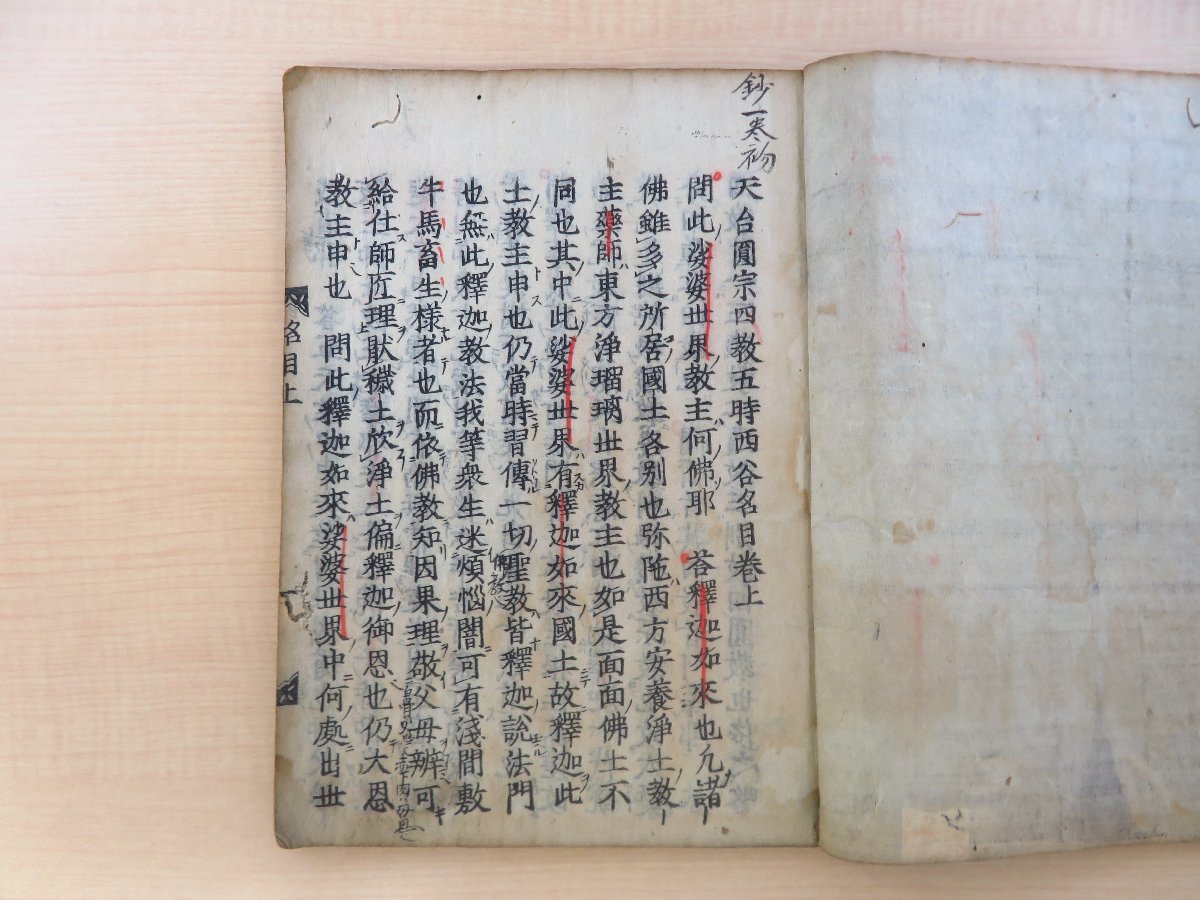 鈔一巻初
天台圓宗四教五時西谷名目巻上
問此娑婆世界教主何佛耶　荅釋迦如來也凢諸
佛雖多之所居國土各别也弥陁西方安養淨土教
主藥師東方淨瑠璃世界教主也如是面面佛土不
同也其中此娑婆世界有釋迦如來國土故釋迦此
土教主申也仍當時習傳一切聖教皆釋迦說法門
也無此釋迦教法我等衆生迷煩惱闇可有淺間敷
牛馬畜生樣者也而依佛教知因果理敬父母辨可
給仕師匠理猒穢土欣淨土偏釋迦御恩也仍大恩
教主申也　問此釋迦如來娑婆世界中何處出世
名目上